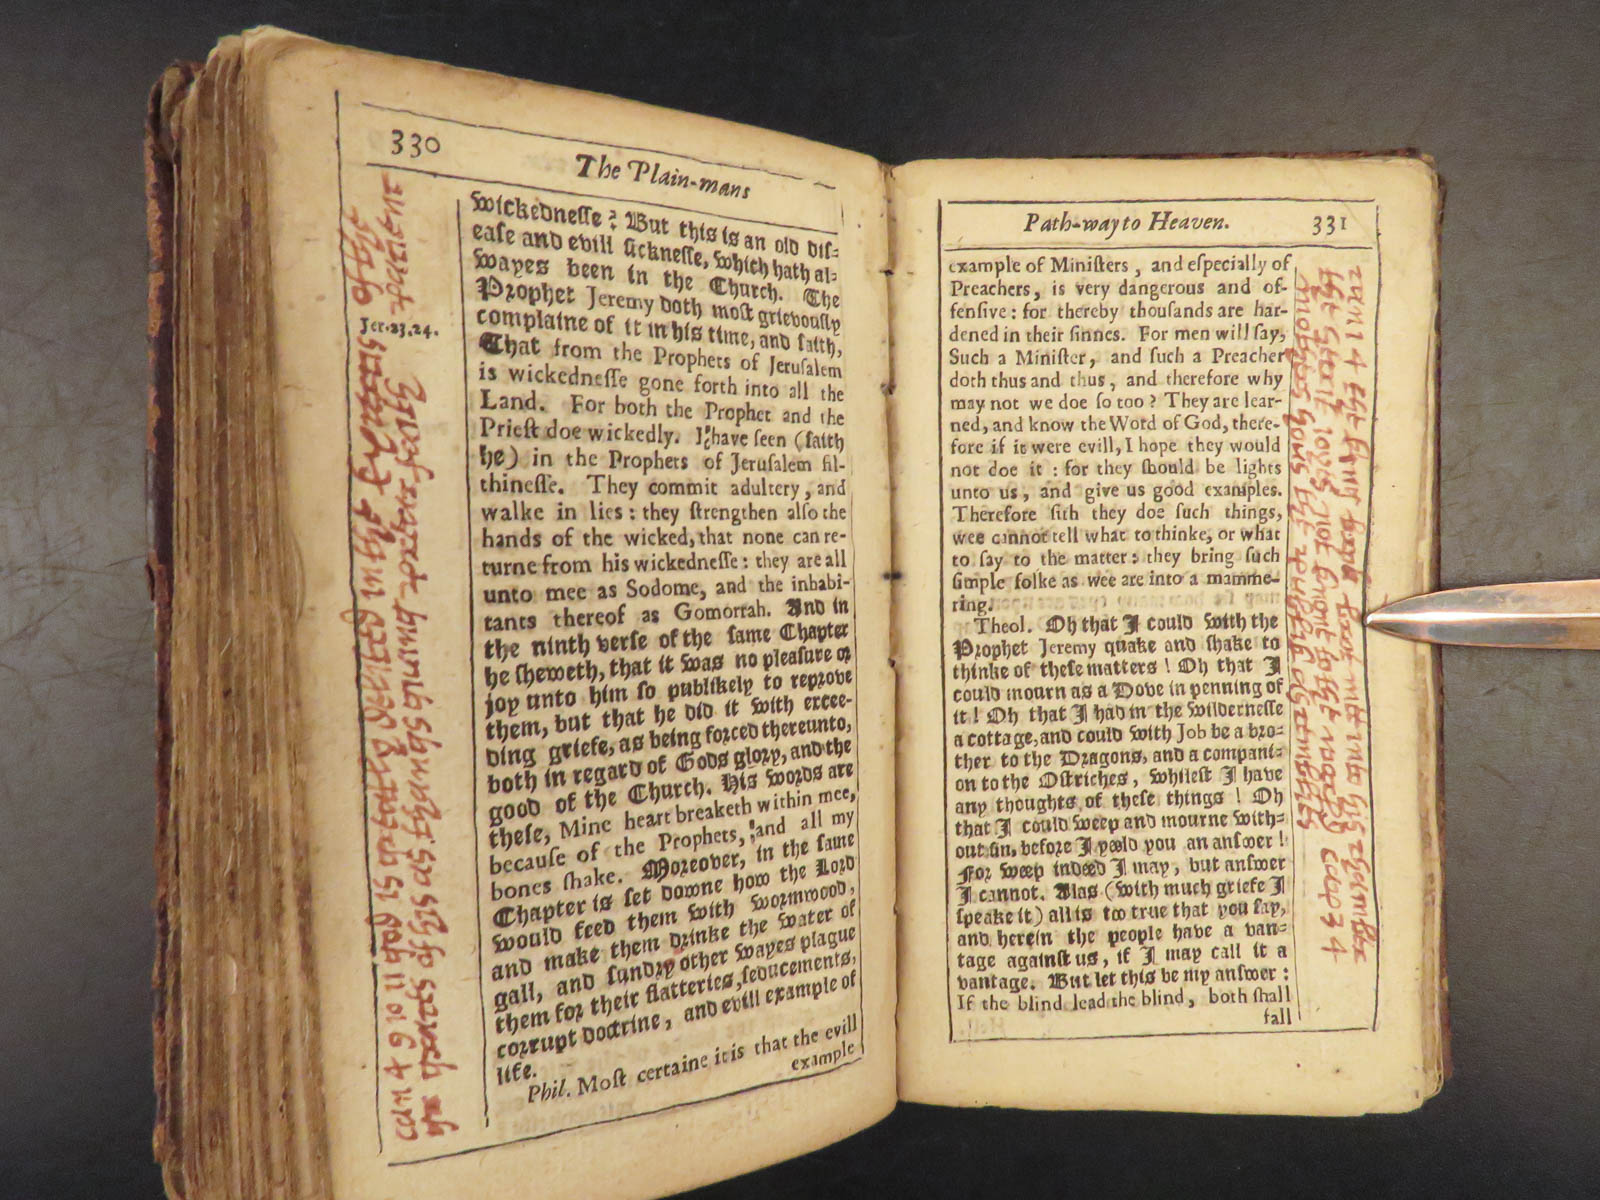 330
The Plain-mans
wickednesse? But this is an old dis-
ease and evill sicknesse, which hath al-
wayes been in the Church. The
Prophet Jeremy doth most grievously
complaine of it in his time, and saith,
That from the Prophets of Jerusalem
is wickednesse gone forth into all the
Land. For both the Prophet and the
Priest doe wickedly. I have seen (saith
he) in the Prophets of Jerusalem fil-
thinesse. They commit adultery, and
walke in lies: they strengthen also the
hands of the wicked, that none can re-
turne from his wickednesse: they are all
unto mee as Sodome, and the inhabi-
tants thereof as Gomorrah. And in
the ninth verse of the same Chapter
he sheweth, that it was no pleasure or
joy unto him so publikely to reprove
them, but that he did it with excee-
ding griefe, as being forced thereunto,
both in regard of Gods glory, and the
good of the Church. His words are
these, Mine heart breaketh within mee,
because of the Prophets, and all my
bones shake. Moreover, in the same
Chapter is set downe how the Lord
would feed them with wormwood,
and make them drinke the water of
gall, and sundry other wayes plague
them for their flatteries, seducements,
corrupt doctrine, and evill example of
life.
Phil. Most certaine it is that the evill
example
Jer. 23. 24.
Path-way to Heaven.
331
example of Ministers, and especially of
Preachers, is very dangerous and of-
fensive: for thereby thousands are har-
dened in their sinnes. For men will say,
Such a Minister, and such a Preacher
doth thus and thus, and therefore why
may not we doe so too? They are lear-
ned, and know the Word of God, there-
fore if it were evill, I hope they would
not doe it: for they should be lights
unto us, and give us good examples.
Therefore sith they doe such things,
wee cannot tell what to thinke, or what
to say to the matter: they bring such
simple folke as wee are into a mamme-
ring.
Theol. Oh that I could with the
Prophet Jeremy quake and shake to
thinke of these matters! Oh that I
could mourn as a Dove in penning of
it! Oh that I had in the wildernesse
a cottage, and could with Job be a bro-
ther to the Dragons, and a compani-
on to the Ostriches, whilest I have
any thoughts of these things! Oh
that I could weep and mourne with-
out sin, before I yeeld you an answer!
For weep indeed I may, but answer
I cannot. Alas (with much griefe I
speake it) all is too true that you say,
and herein the people have a van-
tage against us, if I may call it a
vantage. But let this be my answer:
If the blind lead the blind, both shall
fall